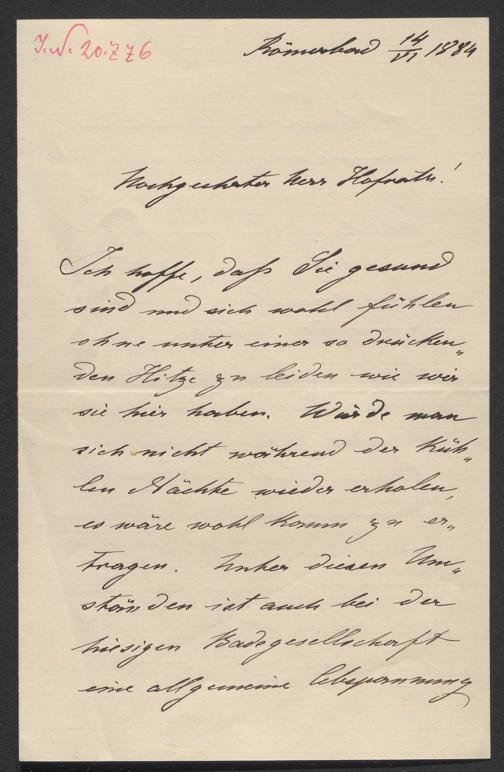 J.N. 20.776
Römerbad 14/VI 1884
Hochgeehrter Herr Hofrath!
Ich hoffe, daß Sie gesund
sind und sich wohl fühlen
ohne unter einer so drücken„
den Hitze zu leiden wie wir
sie hier haben. Würde man
sich nicht während der Küh„
len Nächte wieder erholen,
es wäre wohl kaum zu er„
tragen. Unter diesen Um„
ständen ist auch bei der
hiesigen Badegesellschaft
eine allgemeine Abspannung